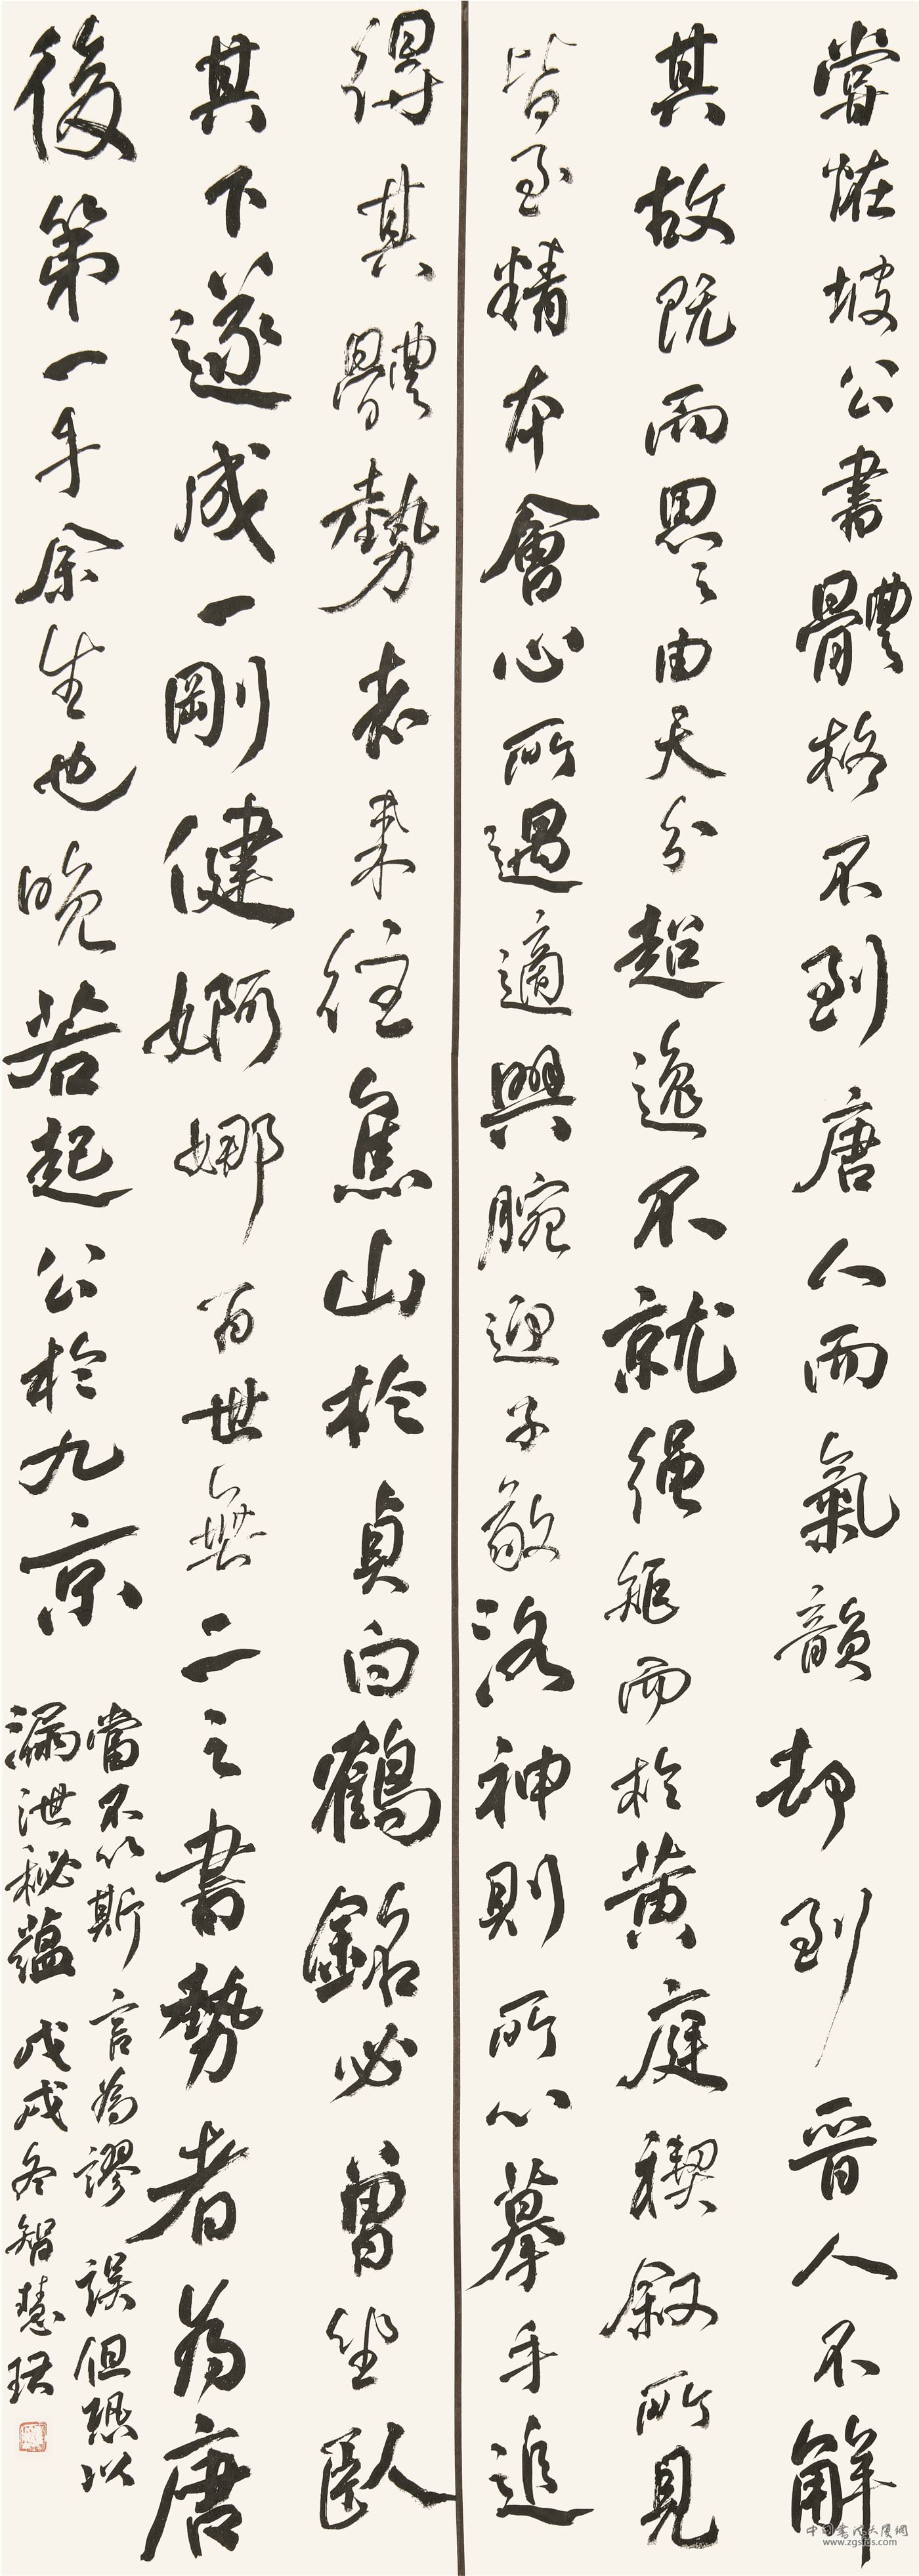 嘗怪坡公書體格不到唐人而氣韻却到晉人不解
其故既而思之由天分超逸不就繩矩而於黃庭禊叙所見
皆至精本會心所遇適興腕迎子敬洛神則所心摹手追
得其體勢表来往焦山於貞白鶴銘必曾坐臥
其下遂成一剛健婀娜百世無二之書勢者为唐
後第一手余生也晚若起公於九京
當不以斯言為謬誤但恐以
漏泄秘蘊戊戌冬智慧珺
中国书法大厦網
www.zgsfds.com